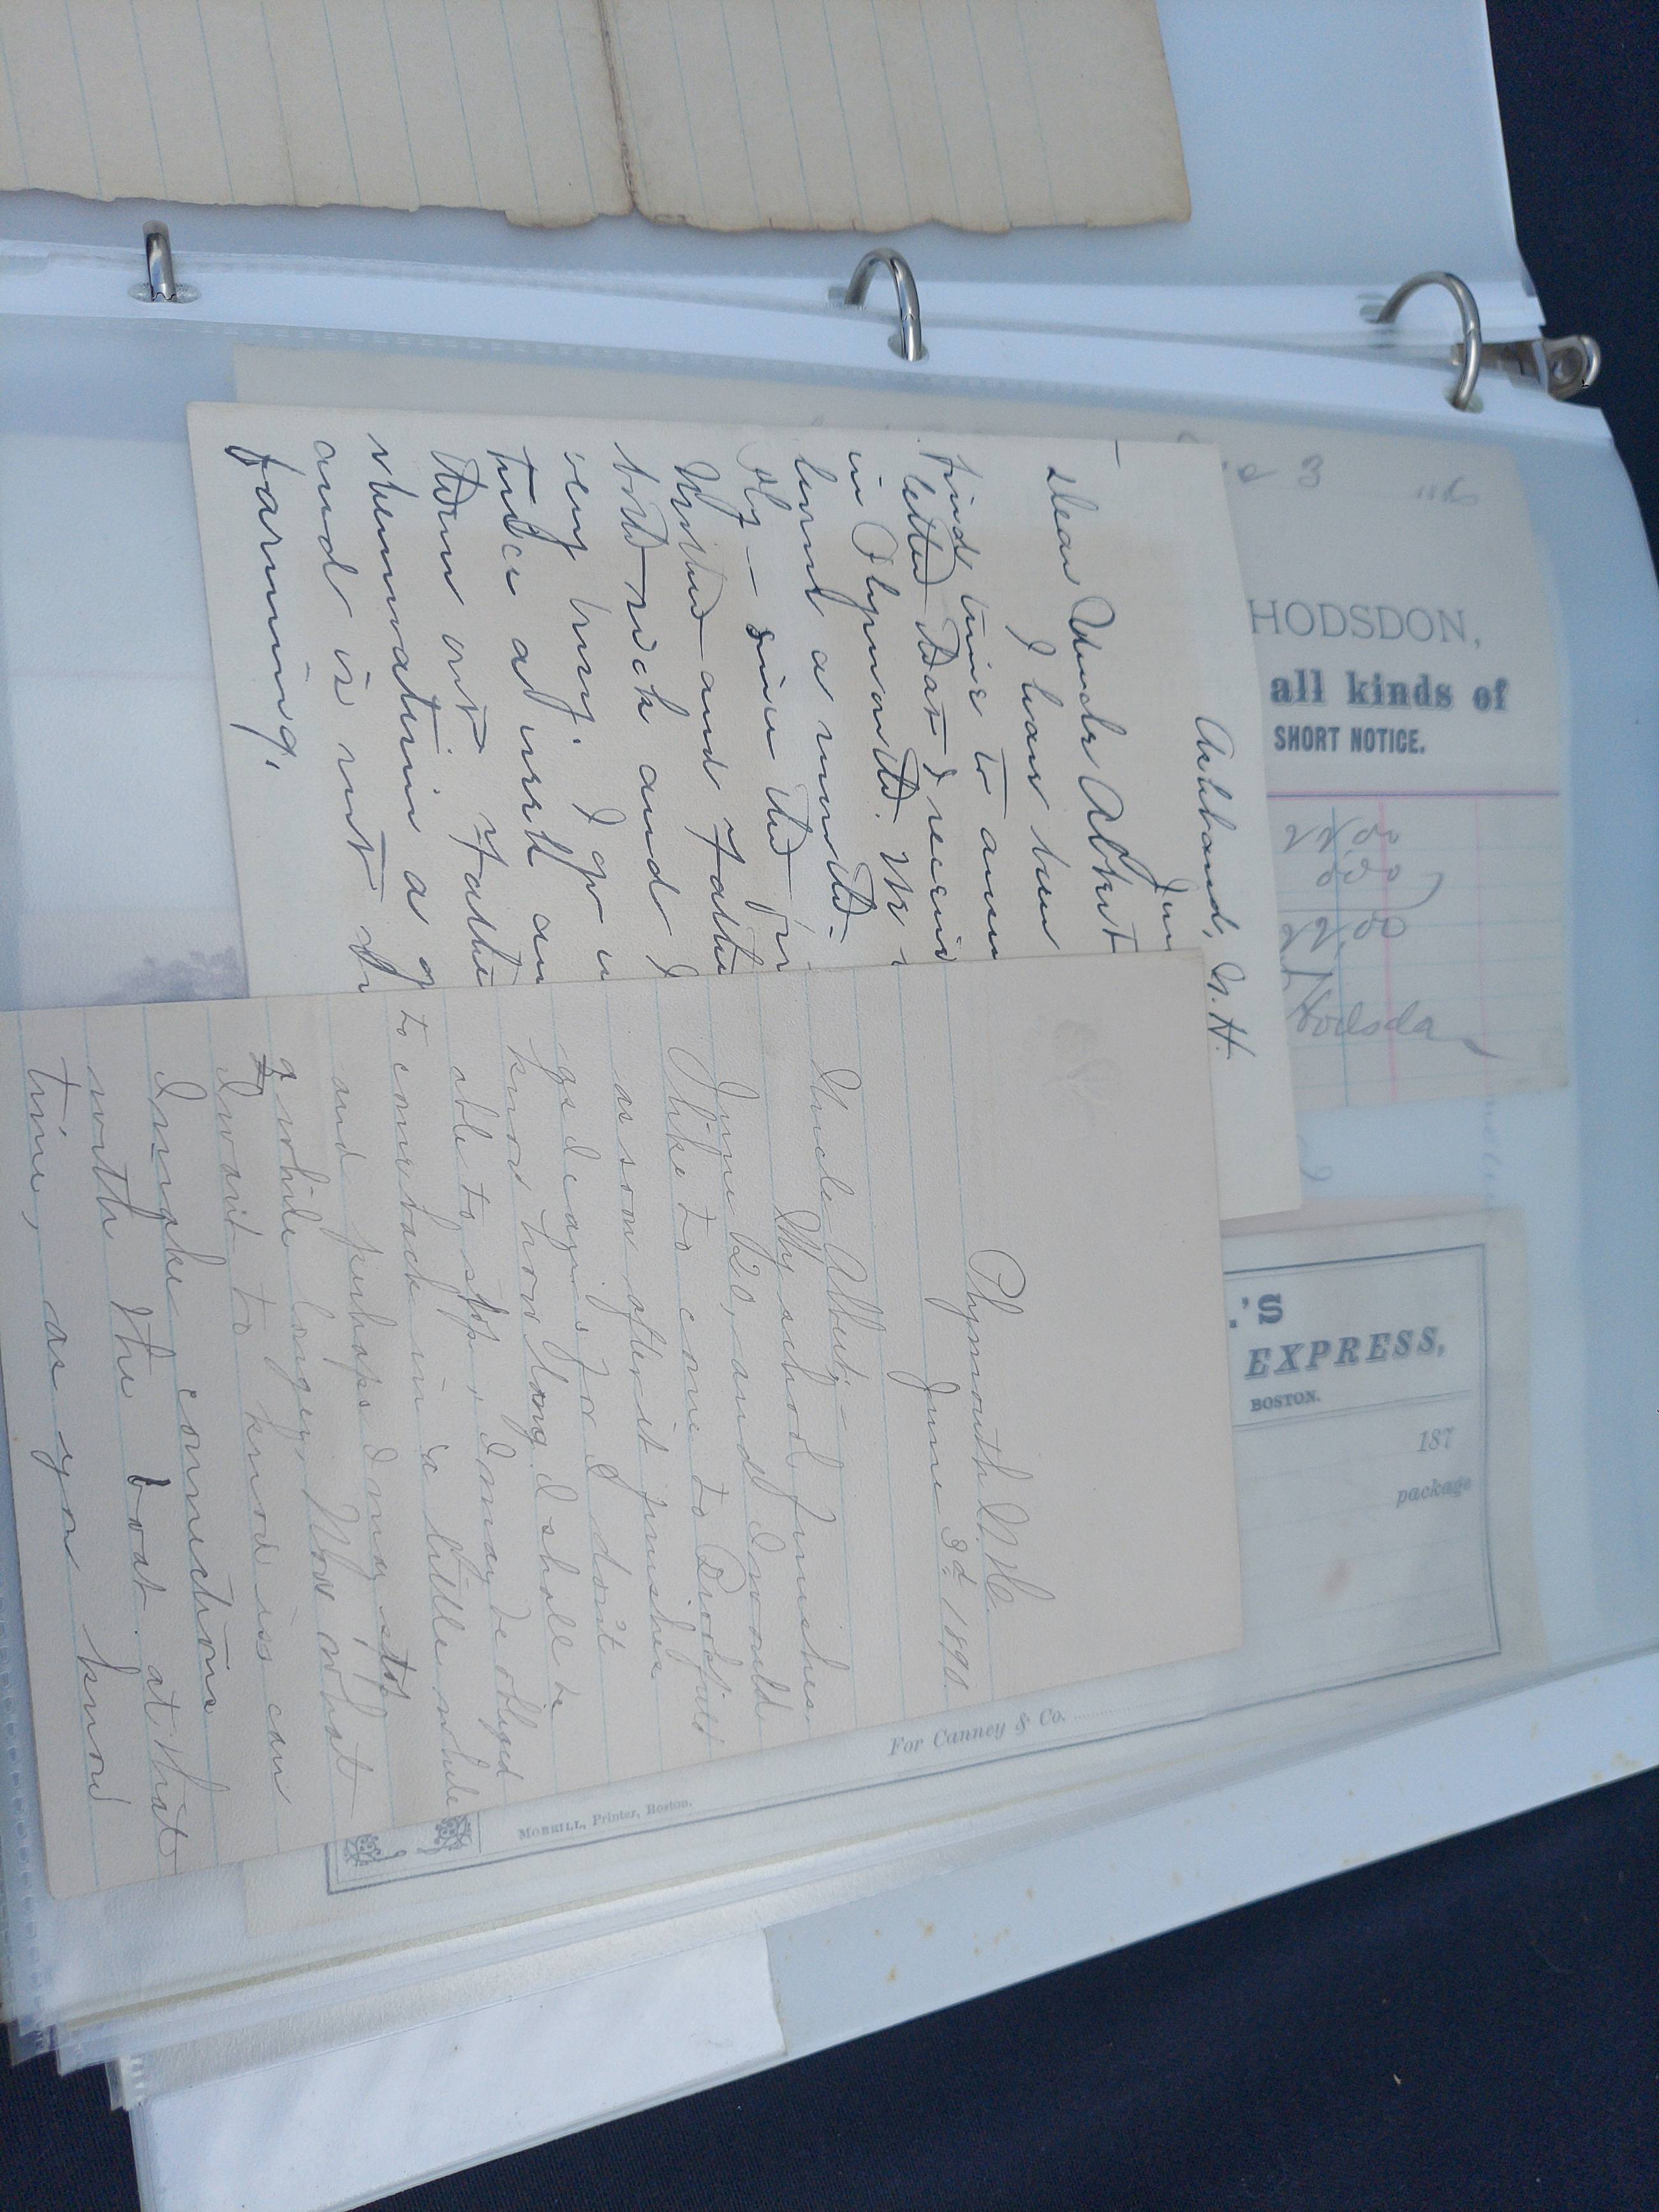 HODSDON,
all kinds of
SHORT NOTICE.
22.00
22.00
Ashland, N.H.
Jun
Dear Uncle Albert
I have been
find time to answ
letter that I receiv
in Plymouth. We
lived a month
since the
and Father
both sick and I
very busy. I go
twice a week an
them out. Father
rheumatism a g
and is not
farming.
Plymouth N.H.
June 3d 1890.
Uncle Albert;—
My school finishes
June 20, and I would
like to come to Brookfield
as soon after it finishes
as I can; for I don't
know how long I shall be
able to stop, I may be obliged
to come back in a little while
and perhaps I may stop
a while longer. Now what
I want to know is can
I make connections
with the boat at that
time, as you know
.'S
EXPRESS,
BOSTON.
187
package
For Canney & Co.
MORRILL, Printer, Boston.